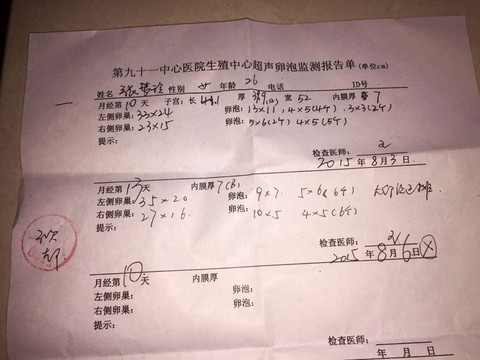 第九十一中心医院生殖中心超声卵泡监测报告单(单位cm)
姓名 张梦 性别 女 年龄 26 电话 ID号
月经第10天 子宫:长 厚 宽52 内膜厚 7
左侧卵巢:33×24 卵泡:13×11, 4×5(4个), 3×3(2个)
右侧卵巢:23×15 卵泡:5×6(2个) 4×5(5个)
提示:
检查医师:
2015年8月3日
月经第13天 内膜厚7(B)
左侧卵巢:35×20 卵泡:9×7. 5×6(6个)
右侧卵巢:27×16 卵泡:10×5 4×5(6个)
提示:
检查医师:
2015年8月6日
月经第10天 内膜厚
左侧卵巢: 卵泡:
右侧卵巢: 卵泡:
提示:
检查医师:
年 月 日